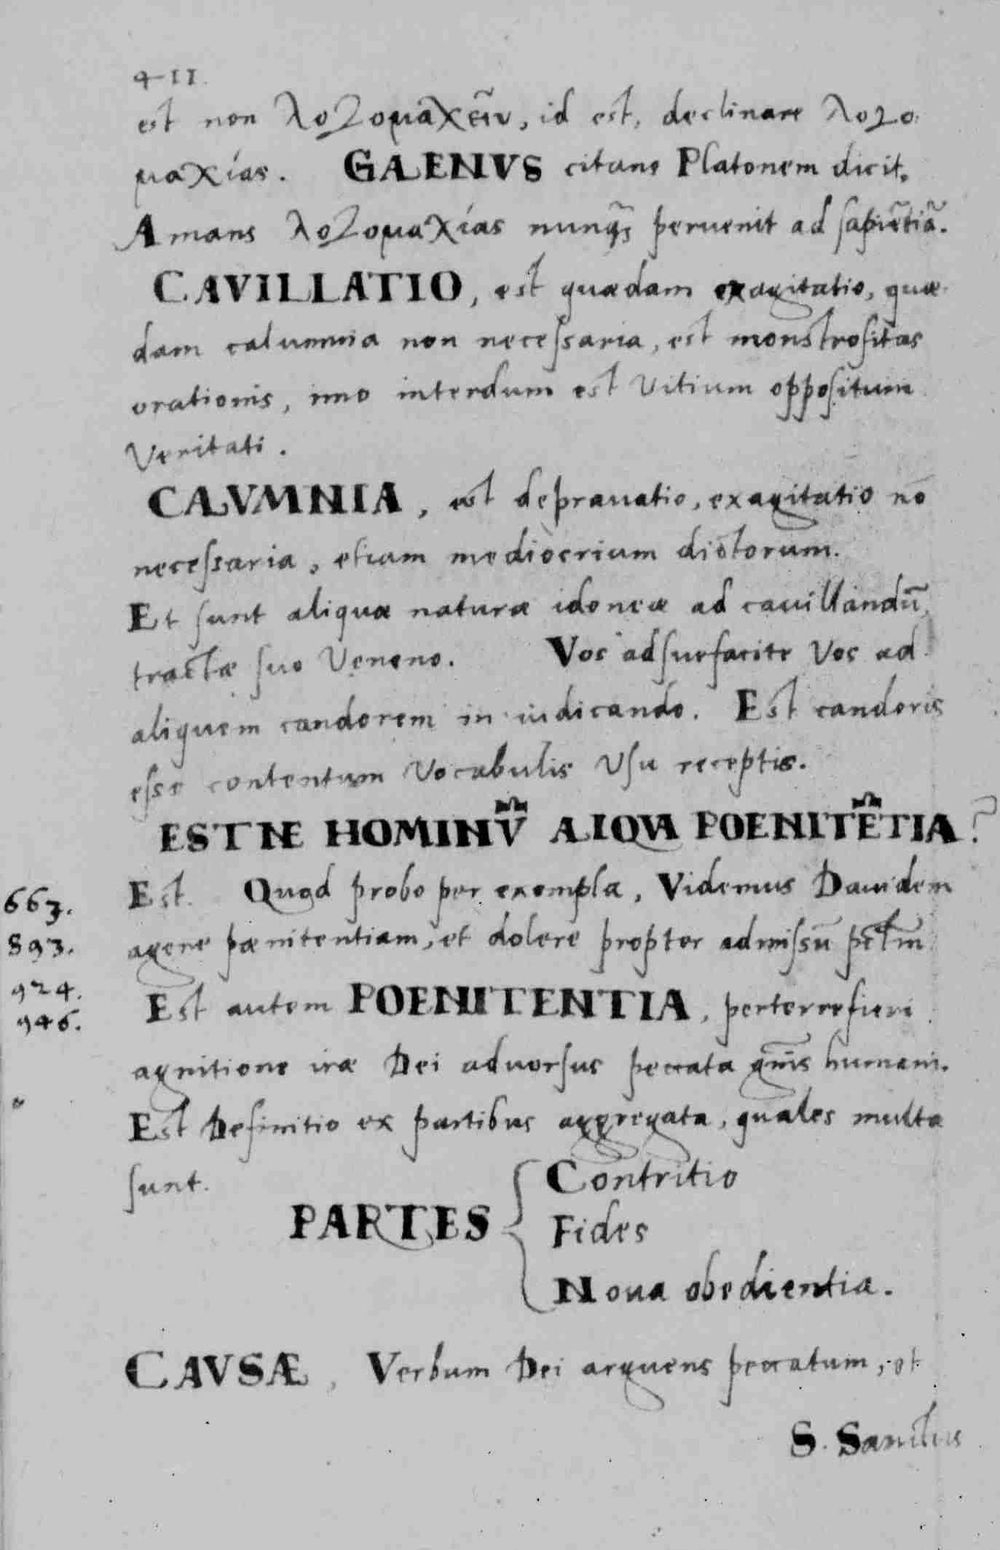 411.
est non λογομαχεῖν, id est, declinare λογο
μαχίας. GALENVS citans Platonem dicit.
Amans λογομαχίας nunqꝫ peruenit ad sapiẽtiã.
CAVILLATIO, est quædam exagitatio, quæ
dam calumnia non necessaria, est monstrositas
orationis, imo interdum est Vitium oppositum
Veritati.
CALVMNIA, est deprauatio, exagitatio nō
necessaria, etiam mediocrium dictorum.
Et sunt aliquæ naturæ idoneæ ad cauillandū,
tractæ suo Veneno. Vos adsuefacite Vos ad
aliquem candorem in iudicando. Est candoris
esse contentum Vocabulis Vsu receptis.
ESTNE HOMINV̄ ALIQVA POENITĒTIA?
Est. Quod probo per exempla, Videmus Dauidem
663.
agere pænitentiam, et dolere propter admissū pctm̄
893.
924.
Est autem POENITENTIA, perterrefieri
946.
agnitione iræ Dei aduersus peccata gn̄is humani.
Est Definitio ex partibus aggregata, quales multæ
sunt.
PARTES
Contritio
Fides
Noua obedientia.
CAVSÆ, Verbum Dei arguens peccatum, et
S. Sanctus